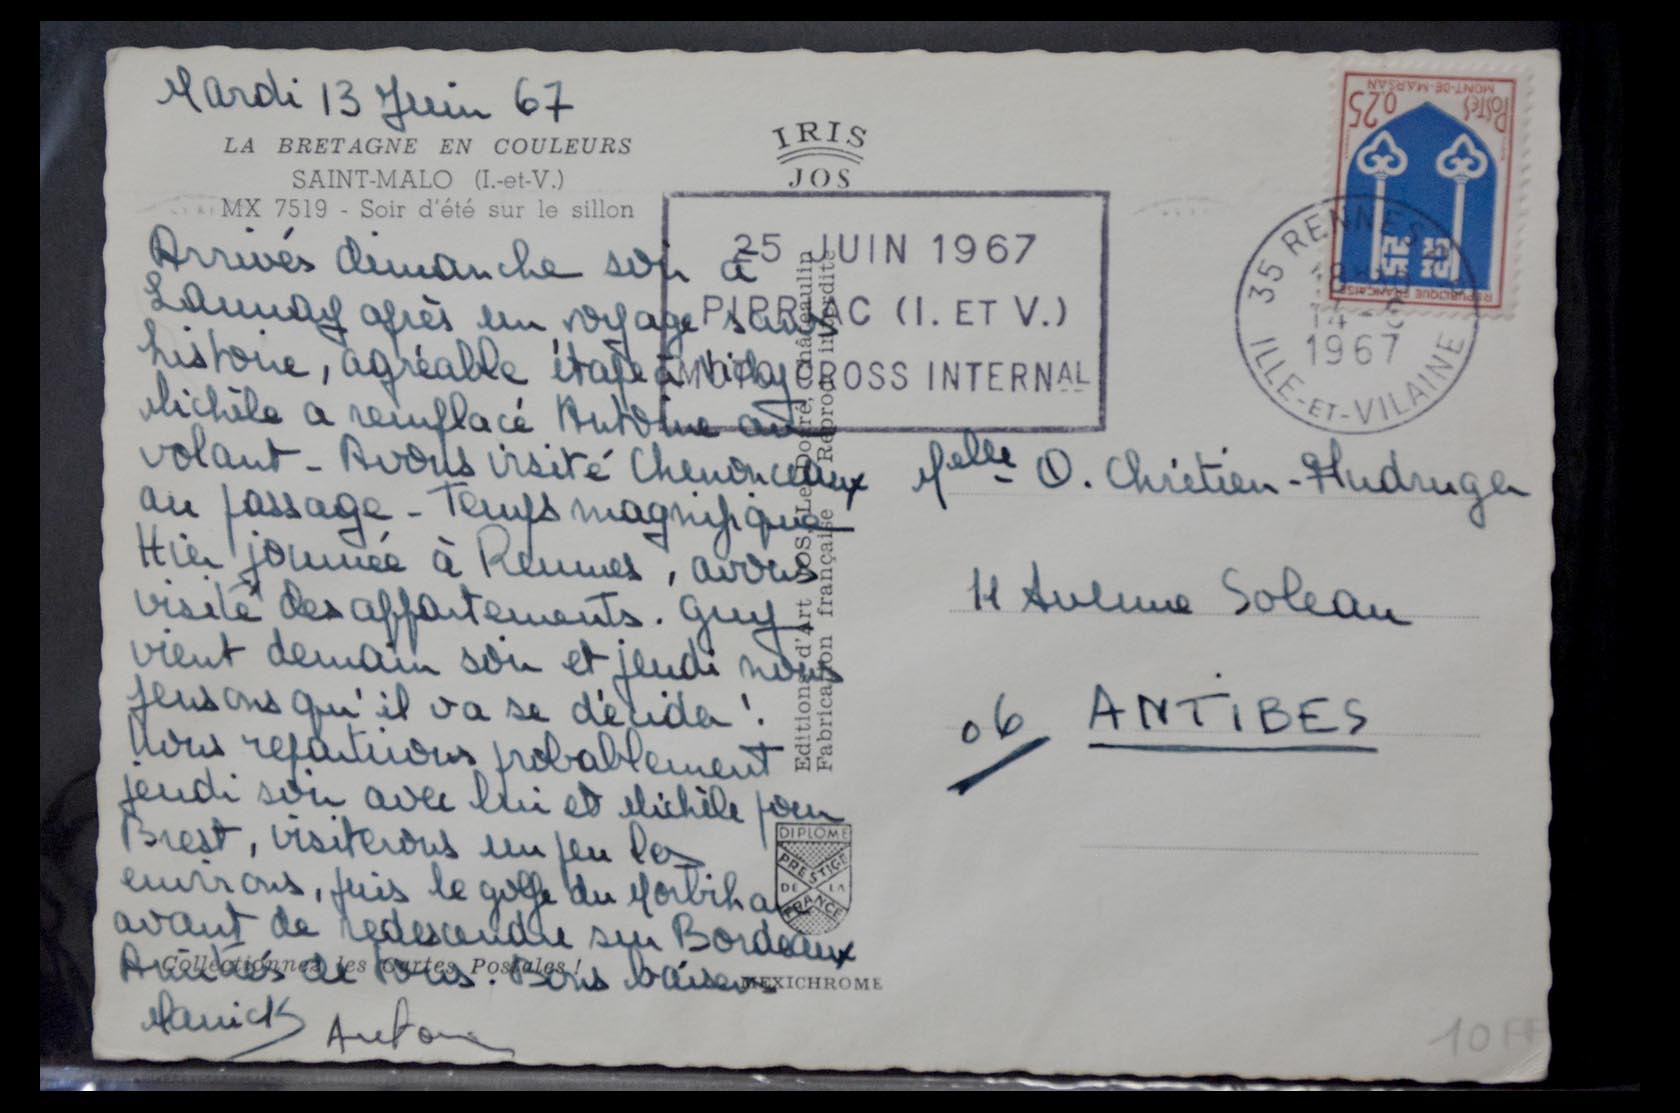 Mardi 13 Juin 67
LA BRETAGNE EN COULEURS
SAINT-MALO (I.-et-V.)
MX 7519 - Soir d'été sur le sillon
Arrivés dimanche soir à
Launay après un voyage sans
histoire, agréable étape à Vichy
Michèle a remplacé Antoine au
volant - Avons visité Chenonceaux
au passage - Temps magnifique
Hier journée à Rennes, avons
visité des appartements. Guy
vient demain soir et jeudi nous
pensons qu'il va se décider !
Nous repartirons probablement
jeudi soir avec lui et Michèle pour
Brest, visiterons un peu les
environs, puis le golfe du Morbihan
avant de redescendre sur Bordeaux
Amitiés de tous. Bons baisers
Collectionnez les Cartes Postales !
Manick Antoine
IRIS
JOS
25 JUIN 1967
PIPRIAC (I. ET V.)
MOTO CROSS INTERNAL
Editions d'Art JOS, Le Doaré, Châteaulin
Fabrication française Reprod. interdite
DIPLOME
PRESTIGE
DE LA
FRANCE
MEXICHROME
POSTES 0,25
MONT-DE-MARSAN
REPUBLIQUE FRANÇAISE
35 RENNES
14 - 6
1967
ILLE-ET-VILAINE
Melle O. Chrétien-
11 Avenue Soleau
06 ANTIBES
10 FF